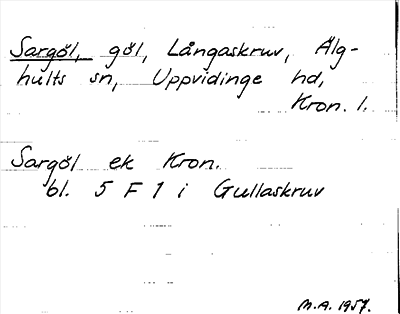 Sargöl, göl, Långaskruv, Älg-
hults sn, Uppvidinge hd,
Kron. l.
Sargöl ek Kron.
bl. 5 F 1 i Gullaskruv
M.A. 1957.